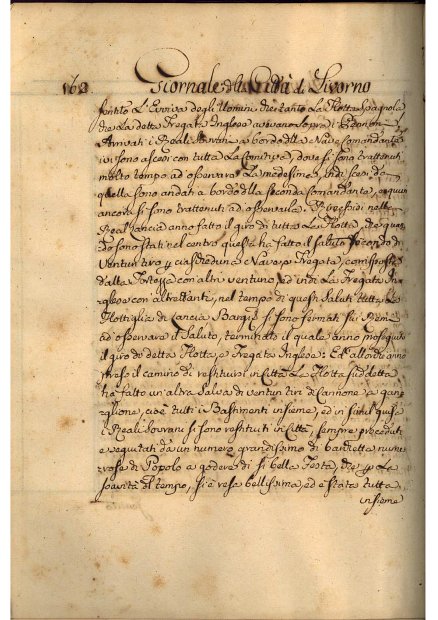 162 Giornale della Città di Livorno
sentito L'Evviva degli Uomini che tanto La Flotta Spagnola
che La detta Fregata Inglese avevano sopra di Pennoni
Arrivati i Reali Sovrani a bordo della Nave Comandante
ivi sono ascesi con tutta La Comitiva, dove si sono trattenuti
molto tempo ad osservare La medesima, indi scesi da
quella sono andati a bordo della seconda Comandante,
ancora si sono trattenuti ad osservarla. nella
Real Lancia anno fatto il giro di tutta La Flotta, che quan-
do sono stati nel centro questa ha fatto il saluto secondo di
ventun tiro p ciascheduna Nave, e Fregata, corrisposto
dalla Fortezza con altri ventuno, ed indi La Fregata In-
glese con altrettanti, nel tempo di questi Saluti tutta La
Flottiglia di Lancia Barque si sono fermati sui Remi
ad osservare il Saluto, terminato il quale anno proseguito
il giro di detta Flotta, e Fregata Inglese: Ed allor che anno
preso il camino di restituirsi in Città La Flotta suddetta
ha fatto un'altra salva di ventun tiri di Cannone a
cioè tutti i Bastimenti insieme, ed in simil guisa
i Reali Sovrani si sono restituiti in Città, sempre preceduti
e seguitati da un numero grandissimo di barchetta nume-
rose di Popolo a godere di si bella Festa, che p La
soavità del tempo, si è resa bellissima, ed è stata tutta
insieme